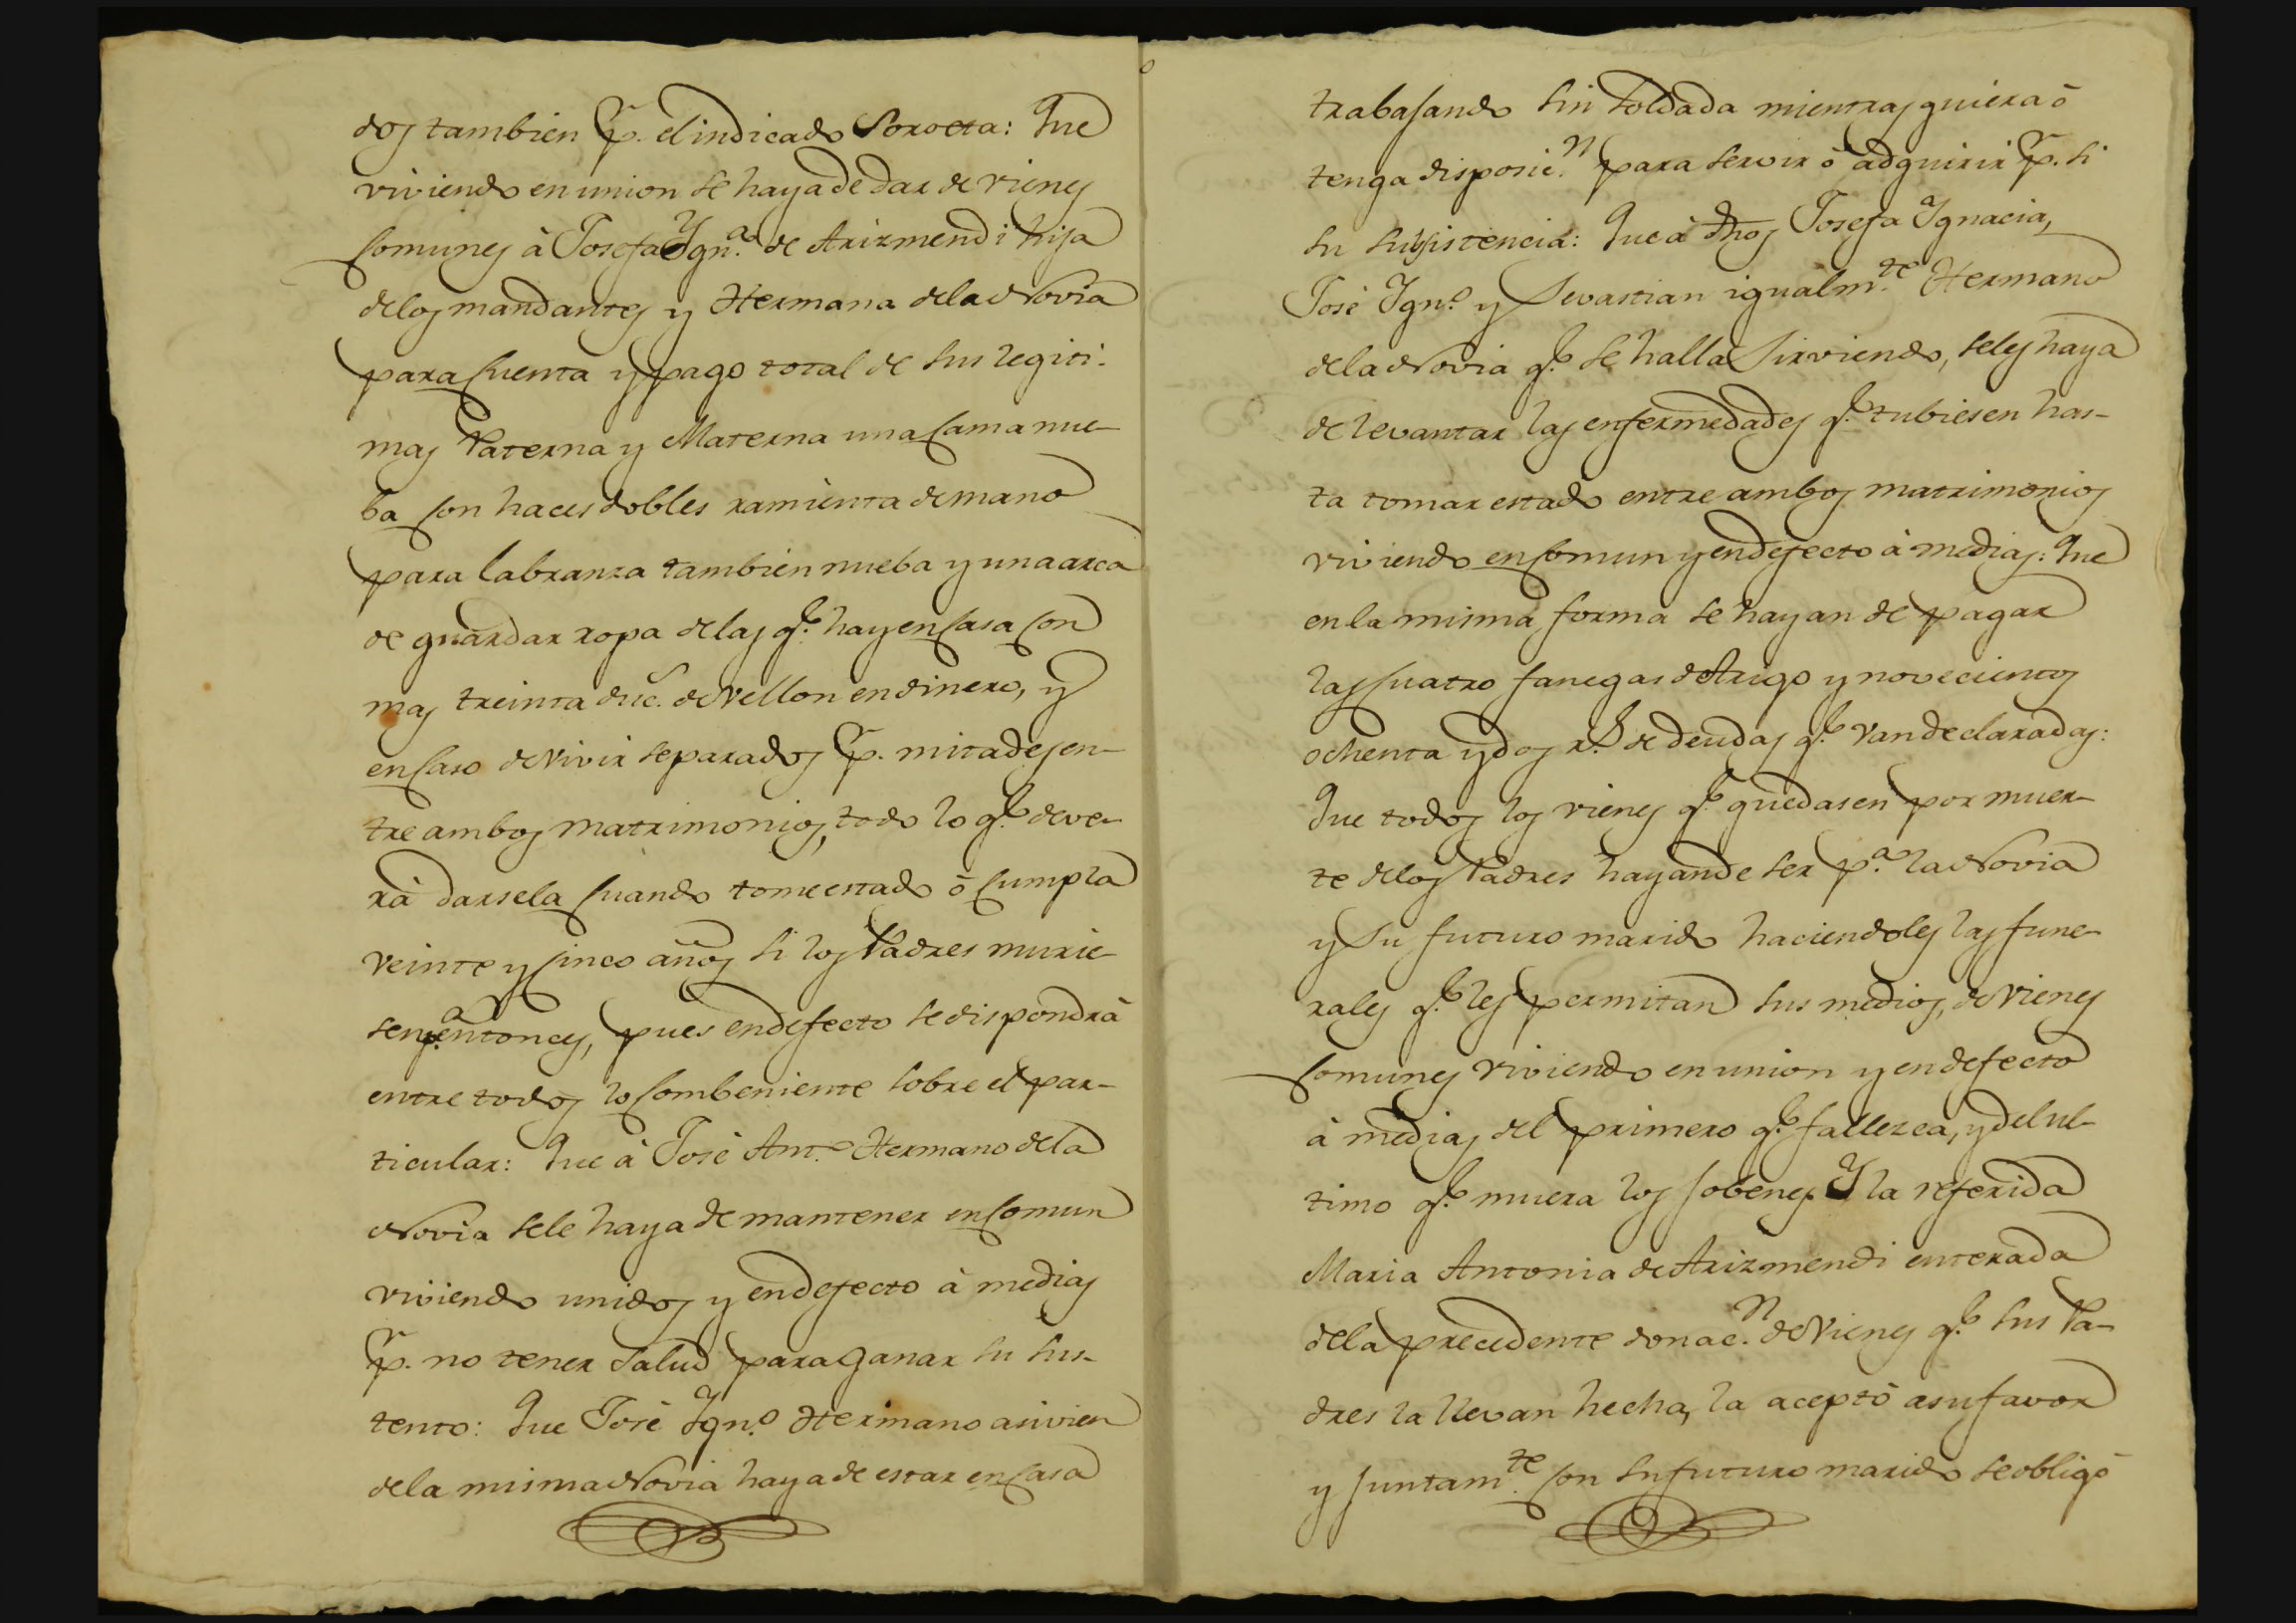 dos tambien p.r el indicado Soroeta: Que
viviendo en union se haya de dar de vienes
comunes à Josefa Ygn.a de Arizmendi hija
de los mandantes y Hermana de la Novia
para cuenta y pago total de sus legiti-
mas Paterna y Materna una cama nue-
ba con haces dobles ramienta de mano
para labranza tambien nueba y una arca
de guardar ropa de las q.e hay en casa con
mas treinta duc.s de vellon en dinero, y
en caso de vivir separados p.r mitades en-
tre ambos matrimonios, todo lo q.e deve-
rà darsela cuando tome estado ò cumpla
veinte y cinco años si los Padres murie-
sen p.a entonces, pues en defecto se dispondrà
entre todos lo combeniente sobre el par-
ticular: Que à José Ant.o Hermano de la
Novia se le haya de mantener en comun
viviendo unidos y en defecto à medias
p.r no tener salud para ganar su sus-
tento: Que José Ygn.o Hermano asi vien
de la misma Novia haya de estar en casa
trabajando sin soldada mientras quiera ò
tenga disposic.n para servir ò adquirir p.r si
su subsistencia: Que à dhos Josefa Ygnacia,
José Ygn.o y Sevastian igualm.te Hermano
de la Novia q.e se halla sirviendo, se les haya
de levantar las enfermedades q.e tubiesen has-
ta tomar estado entre ambos matrimonios
viviendo en comun y en defecto à medias: Que
en la misma forma se hayan de pagar
las cuatro fanegas de trigo y novecientos
ochenta y dos r.s de deudas q.e van declaradas:
Que todos los vienes q.e quedasen por muer-
te de los Padres hayan de ser p.a la Novia
y su futuro marido haciendoles las fune-
rales q.e les permitan sus medios, de vienes
comunes viviendo en union y en defecto
à medias del primero q.e fallezca, y del ul-
timo q.e muera los jobenes. Y la referida
Maria Antonia de Arizmendi enterada
de la precedente donac.n de vienes q.e sus Pa-
dres la llevan hecha, la aceptò a su favor
y juntam.te con su futuro marido se obligò